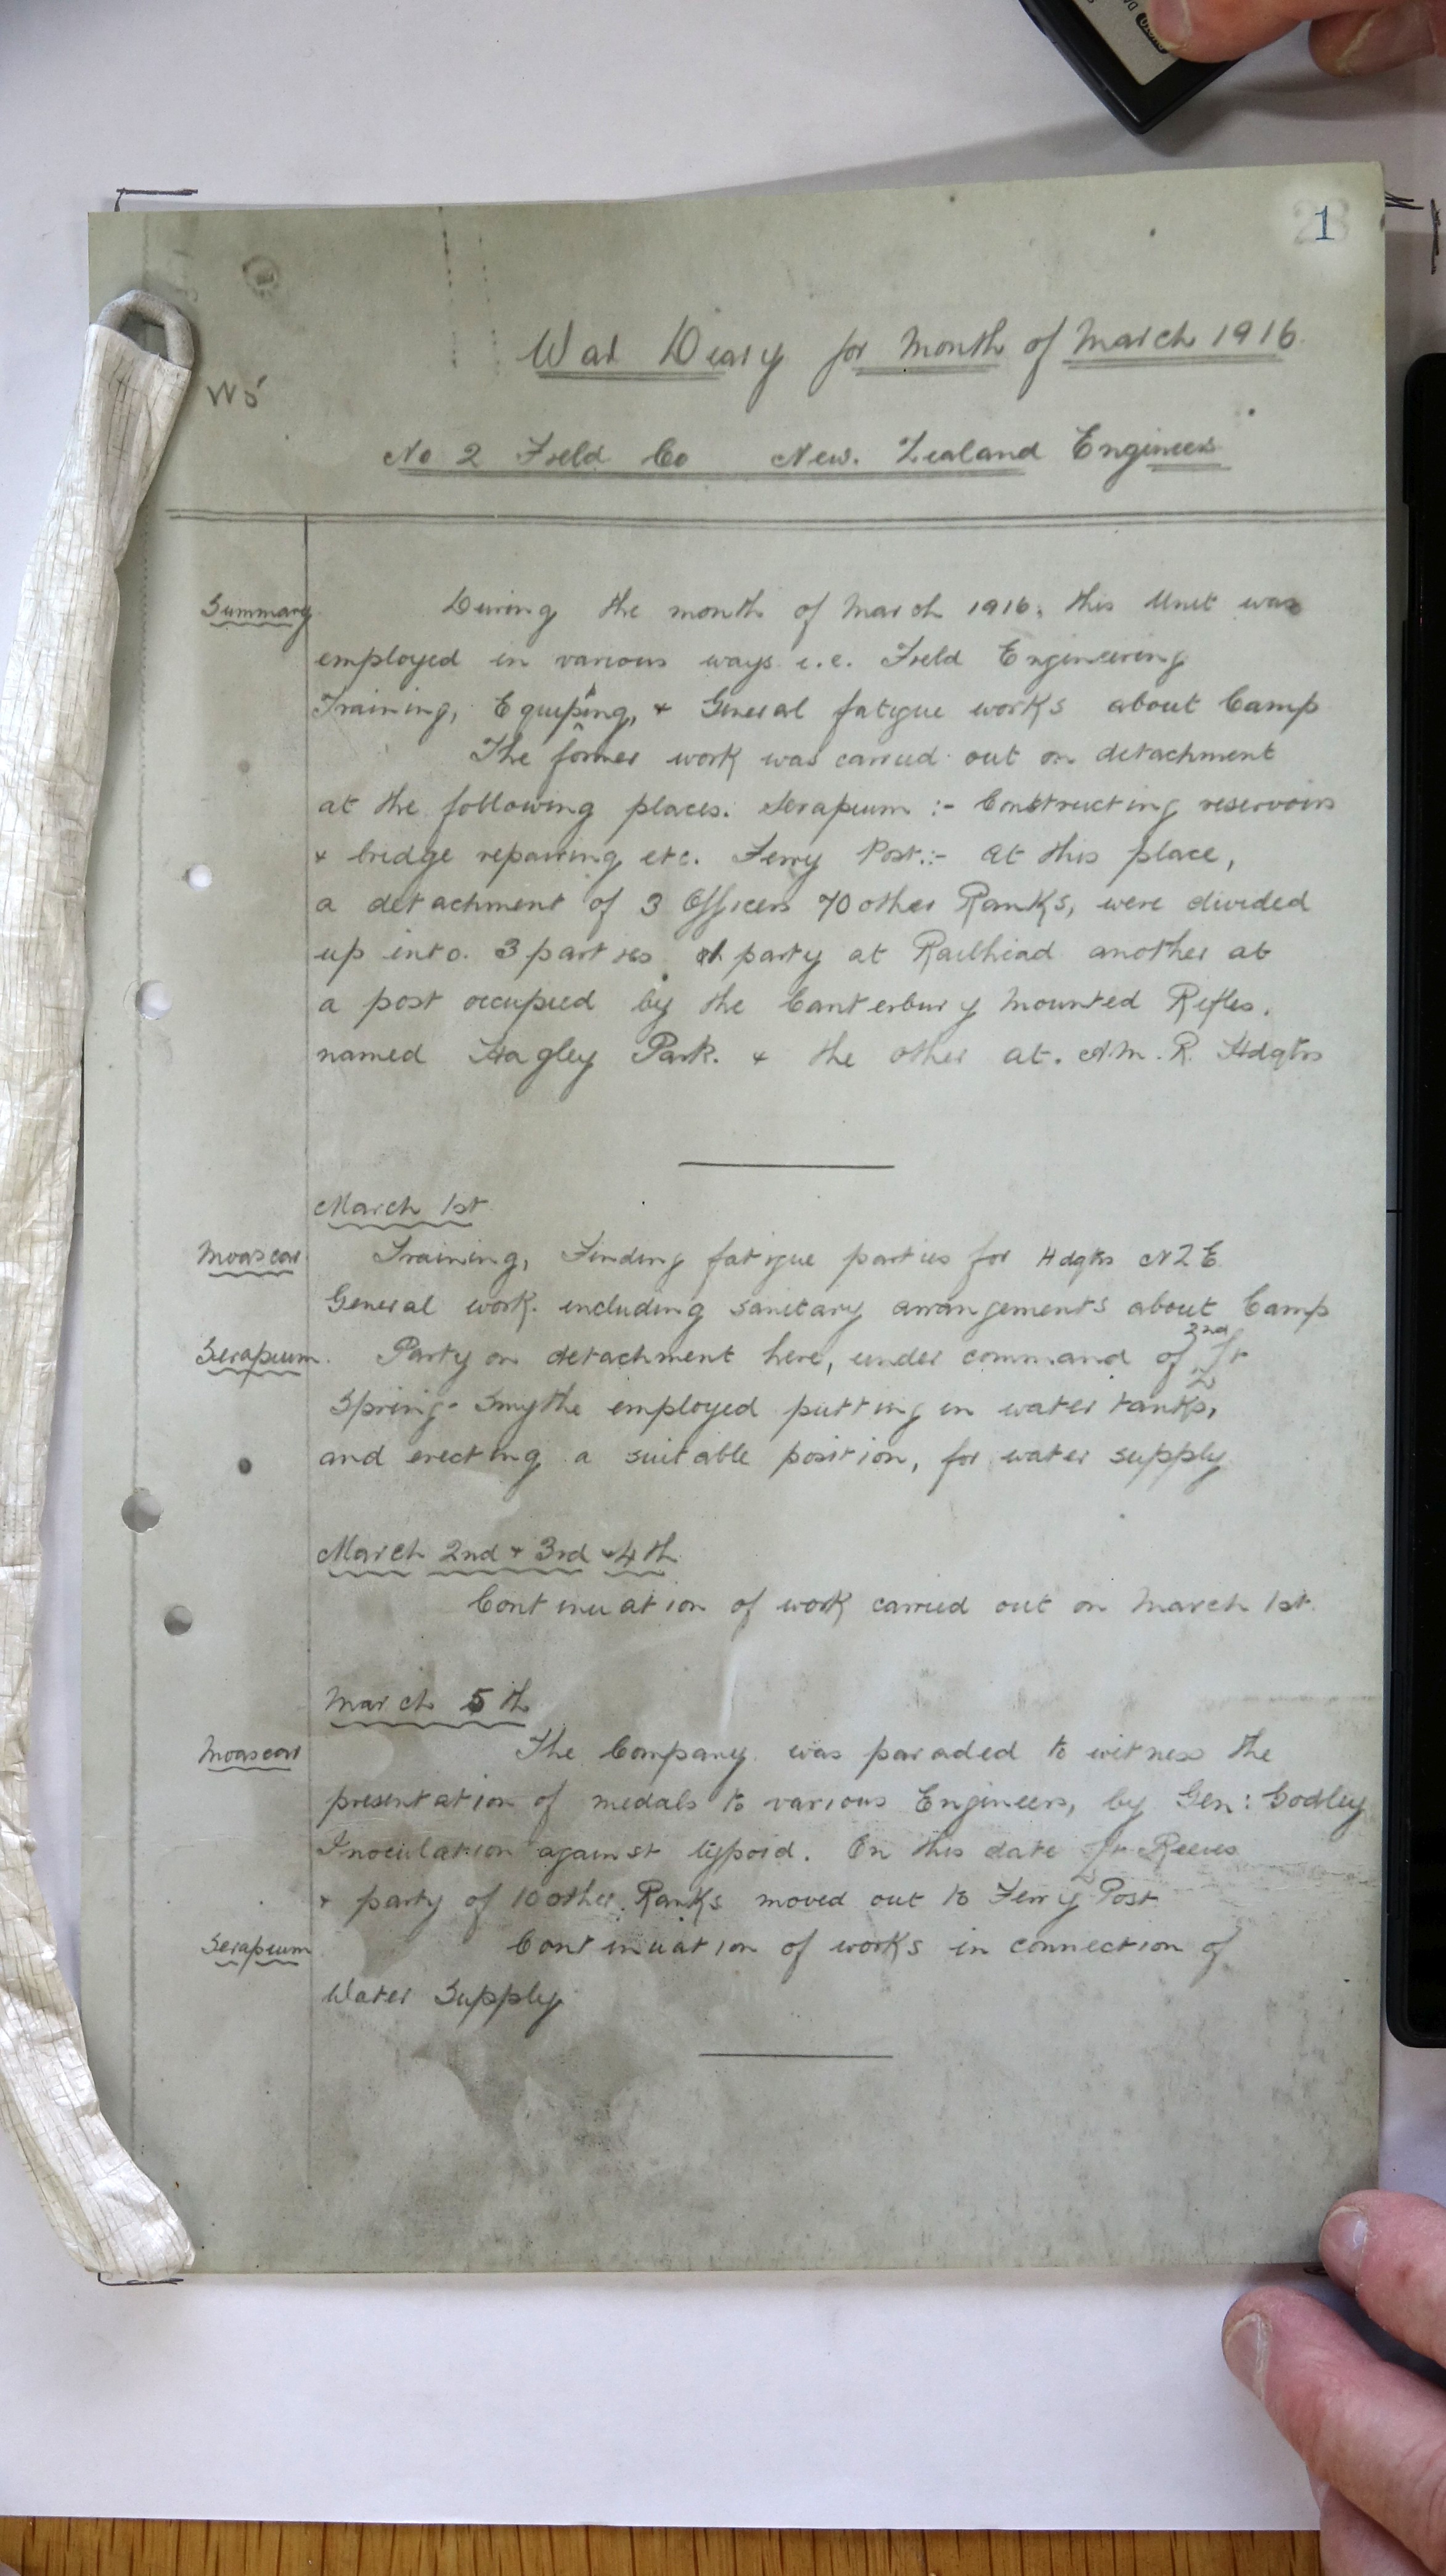 1
War Diary for Month of March 1916
W5
No 2 Field Co New. Zealand Engineers
Summary During the month of March 1916, this Unit was
employed in various ways i.e. Field Engineering
Training, Equipping, & General fatigue works about Camp
The former work was carried out on detachment
at the following places. Serapeum :- Constructing reservoirs
& bridge repairing etc. Ferry Post:- At this place,
a detachment of 3 Officers 70 other Ranks, were divided
up into. 3 parties. party at Railhead another at
a post occupied by the Canterbury Mounted Rifles.
named Hagley Park. & the other at. A.M.R. Hdqtrs
March 1st
Moascar Training, Finding fatigue parties for Hdqtrs NZE
General work. including sanitary arrangements about Camp
Serapeum. Party on detachment here, under command of 2nd Lt
Spring-Smythe employed putting in water tanks,
and erecting a suitable position, for water supply
March 2nd & 3rd & 4th
Continuation of work carried out on March 1st.
March 5th
Moascar The Company was paraded to witness the
presentation of medals to various Engineers, by Gen: Godley
Inoculation against typoid. On this date Lt Reeves
& party of 10 other Ranks moved out to Ferry Post
Serapeum Continuation of works in connection of
Water Supply